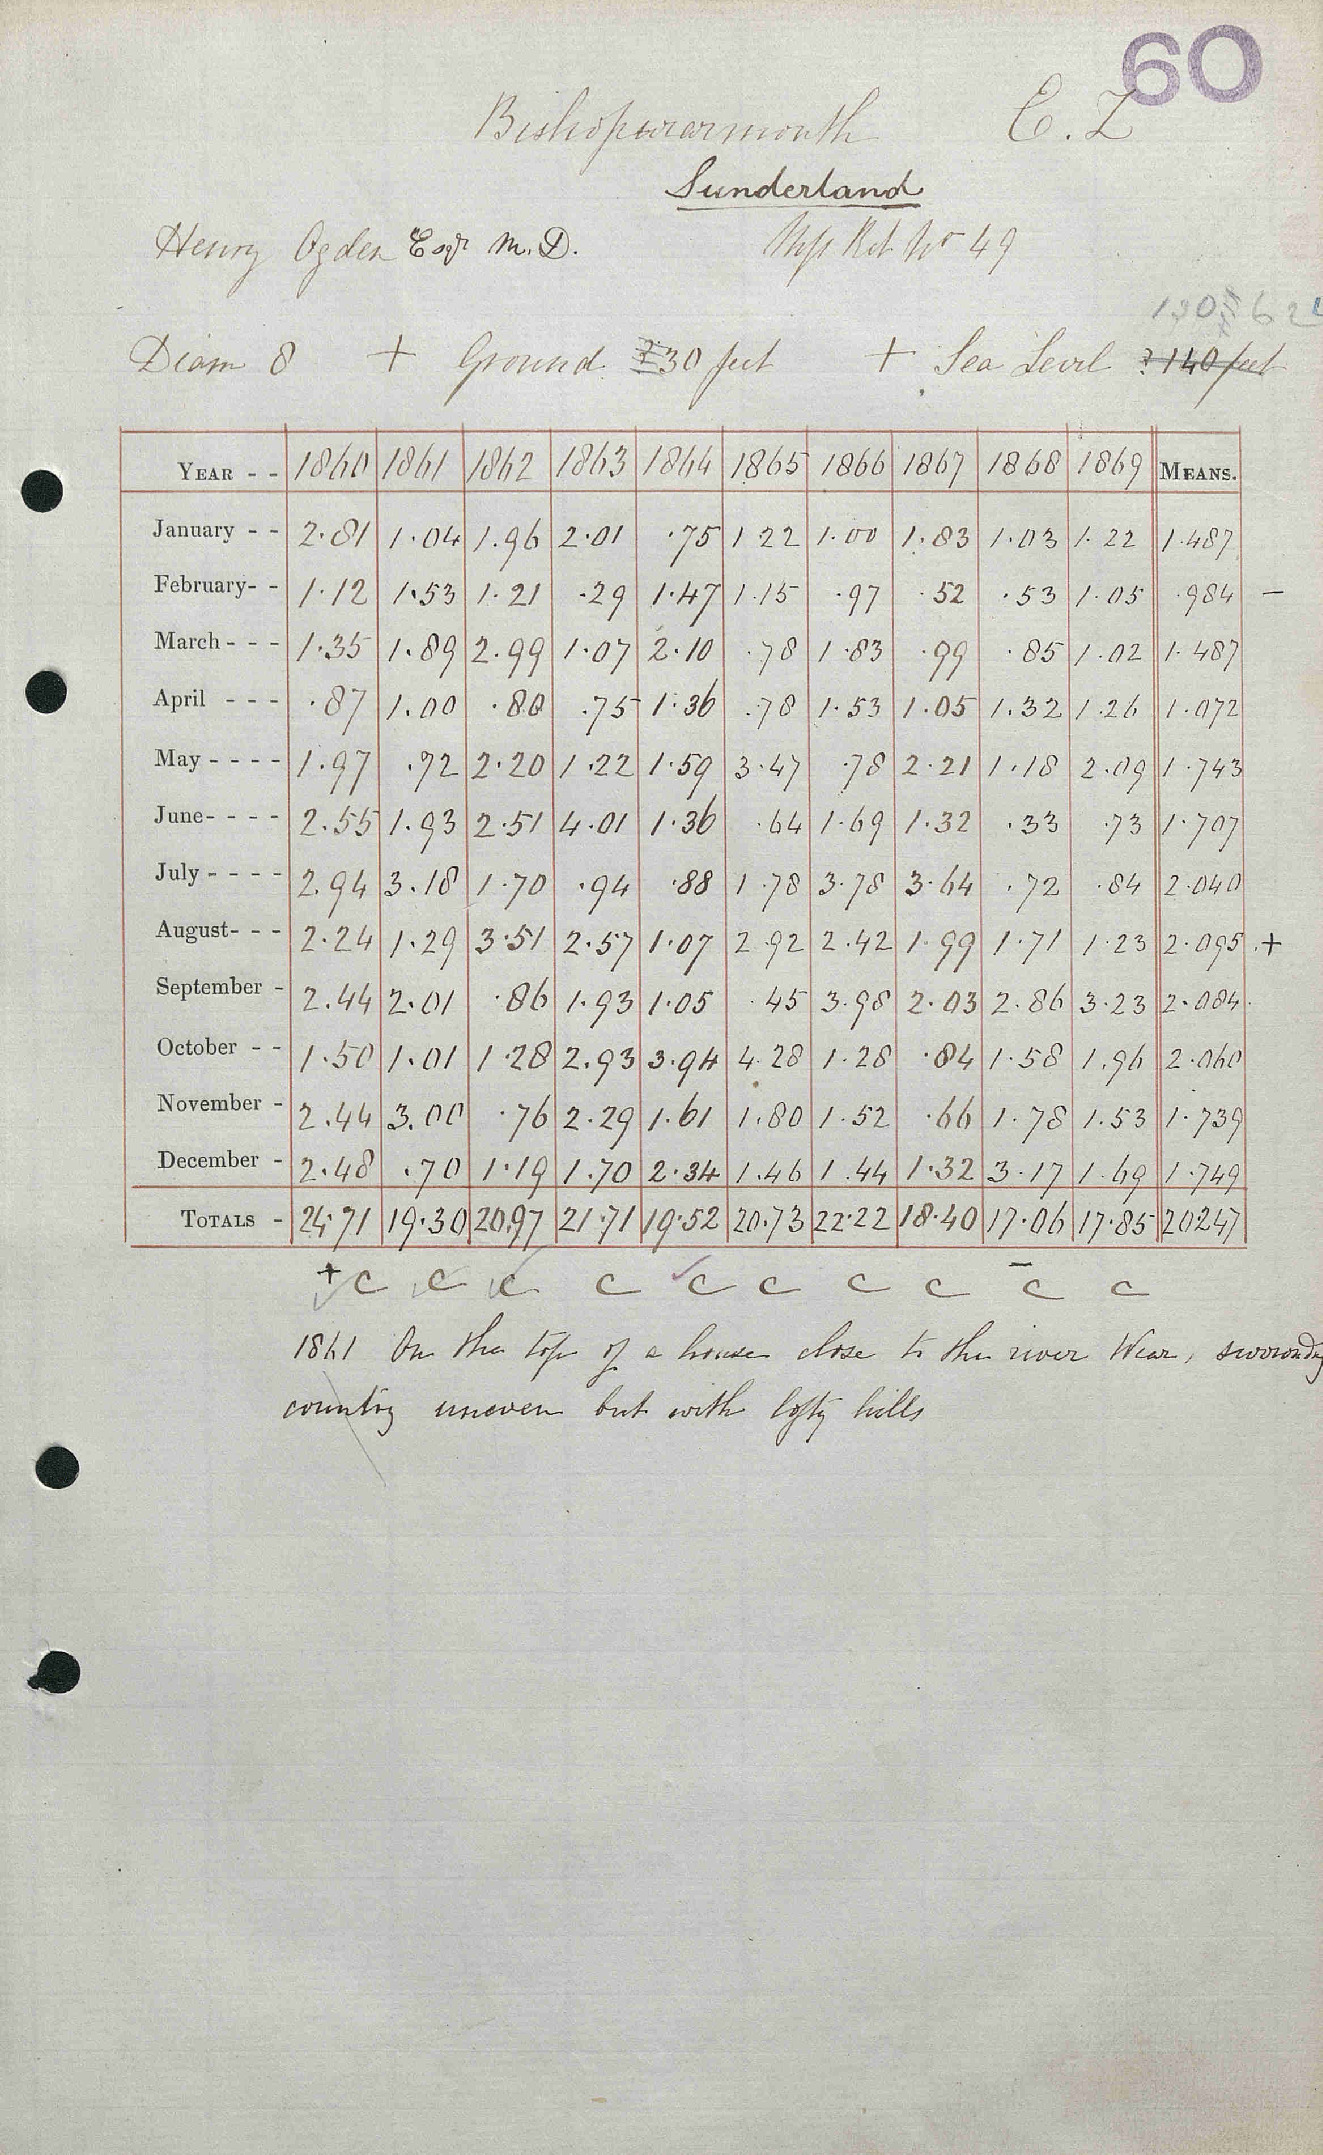 60
Bishopwearmouth C. Z
Sunderland
Henry Ogden Esqr M.D. Mss Ret No 49
130
Diam 8 + Ground 30 feet + Sea Level ? 140 feet
YEAR - - 1860 1861 1862 1863 1864 1865 1866 1867 1868 1869 MEANS.
January - - 2.81 1.04 1.96 2.01 .75 1.22 1.00 1.83 1.03 1.22 1.487
February- - 1.12 1.53 1.21 .29 1.47 1.15 .97 .52 .53 1.05 .984 -
March - - - 1.35 1.89 2.99 1.07 2.10 .78 1.83 .99 .85 1.02 1.487
April - - - .87 1.00 .80 .75 1.36 .78 1.53 1.05 1.32 1.26 1.072
May - - - - 1.97 .72 2.20 1.22 1.59 3.47 .78 2.21 1.18 2.09 1.743
June- - - - 2.55 1.93 2.51 4.01 1.36 .64 1.69 1.32 .33 .73 1.707
July - - - - 2.94 3.18 1.70 .94 .88 1.78 3.78 3.64 .72 .84 2.040
August- - - 2.24 1.29 3.51 2.57 1.07 2.92 2.42 1.99 1.71 1.23 2.095 +
September - 2.44 2.01 .86 1.93 1.05 .45 3.98 2.03 2.86 3.23 2.084
October - - 1.50 1.01 1.28 2.93 3.94 4.28 1.28 .84 1.58 1.96 2.060
November - 2.44 3.00 .76 2.29 1.61 1.80 1.52 .66 1.78 1.53 1.739
December - 2.48 .70 1.19 1.70 2.34 1.46 1.44 1.32 3.17 1.69 1.749
TOTALS - 24.71 19.30 20.97 21.71 19.52 20.73 22.22 18.40 17.06 17.85 20247
+ c c c c c c c c - c c
1861 On the top of a house close to the river Wear, surrounding
country uneven but with lofty hills